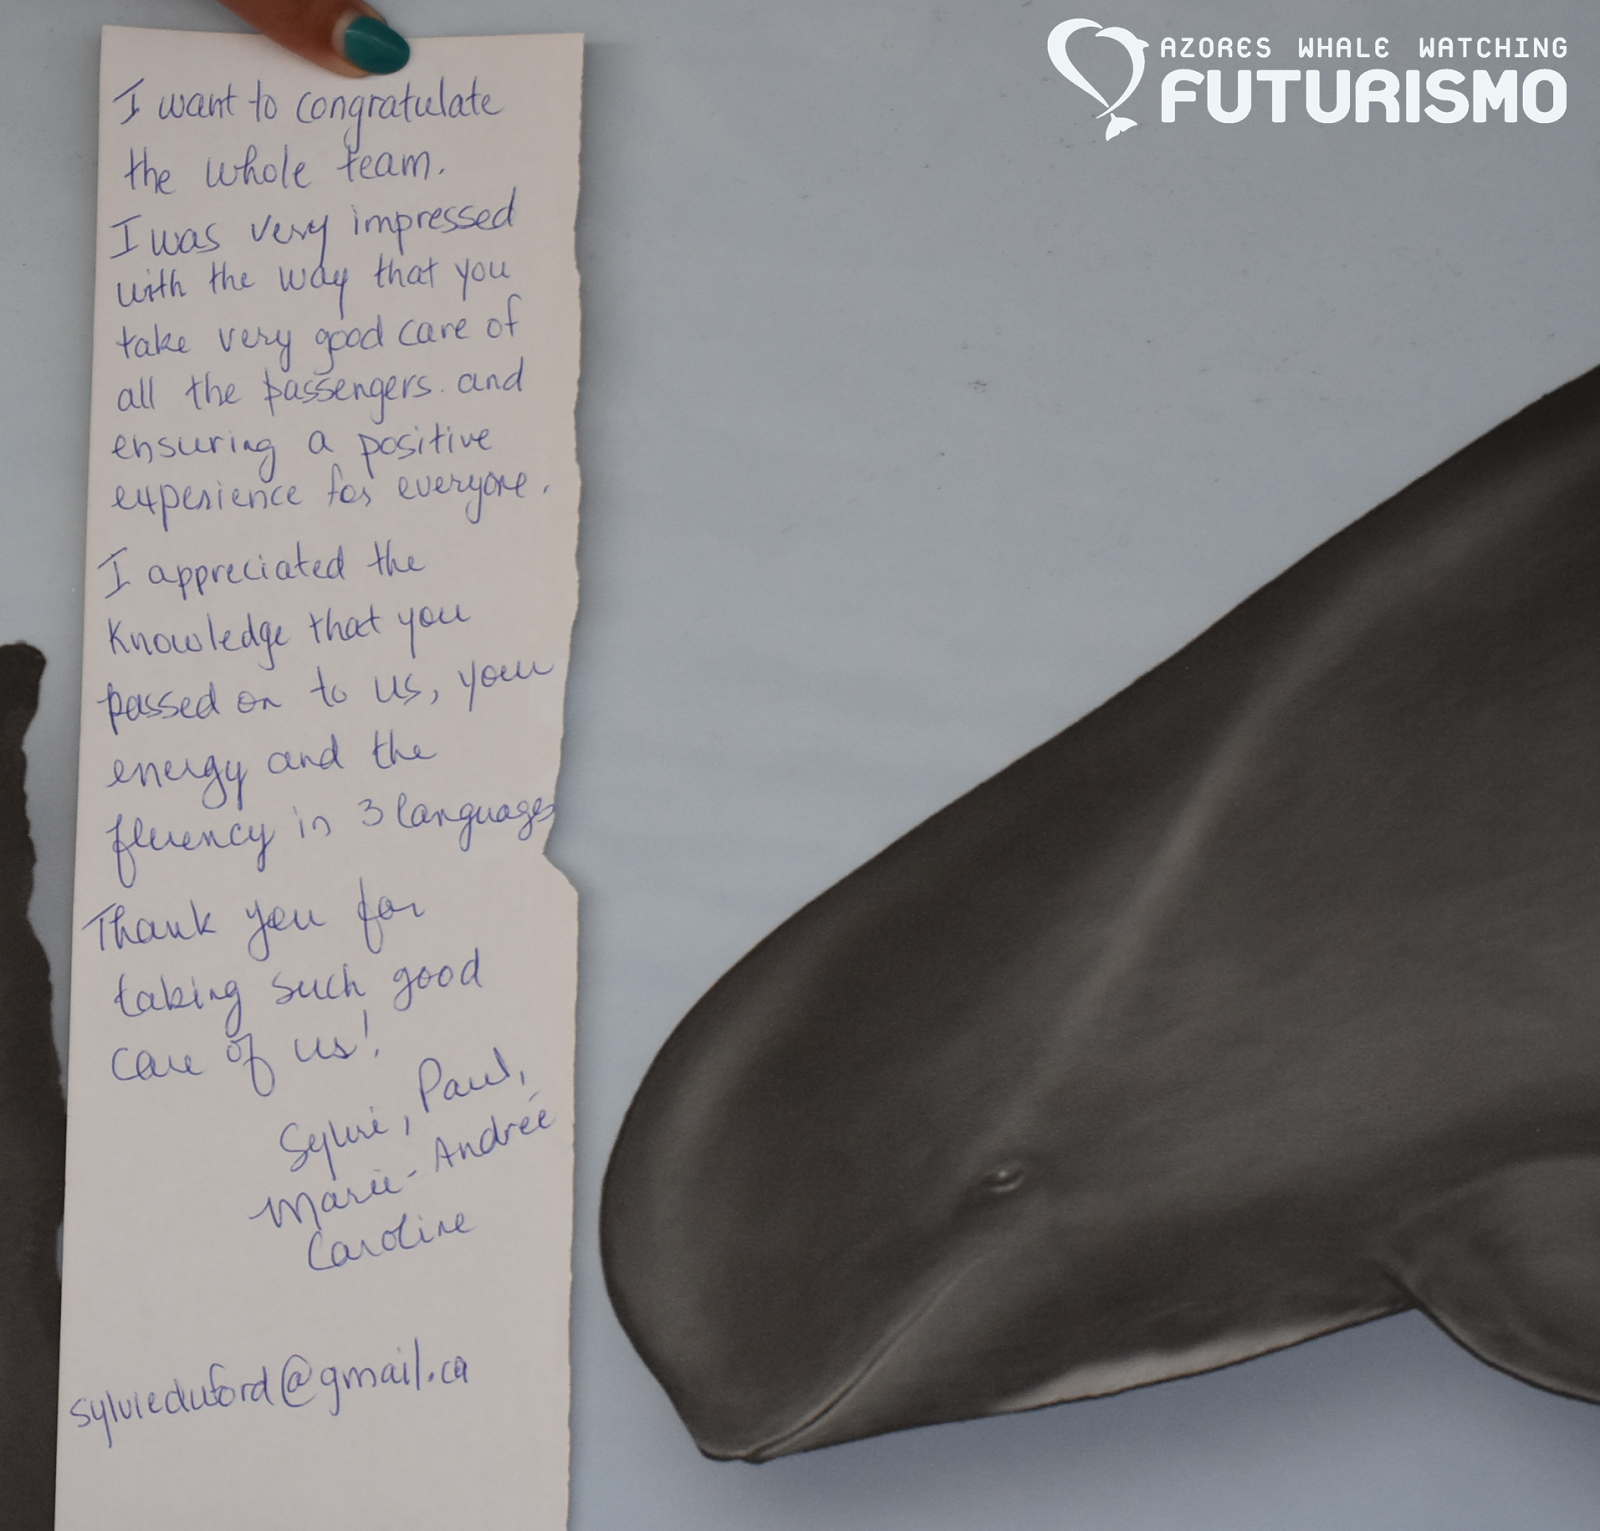 AZORES WHALE WATCHING
FUTURISMO
I want to congratulate
the whole team.
I was very impressed
with the way that you
take very good care of
all the passengers. and
ensuring a positive
experience for everyone.
I appreciated the
Knowledge that you
passed on to us, your
energy and the
fluency in 3 languages
Thank you for
taking such good
care of us!
Sylvie, Paul,
Marie-Andrée
Caroline
sylvieduford@gmail.ca